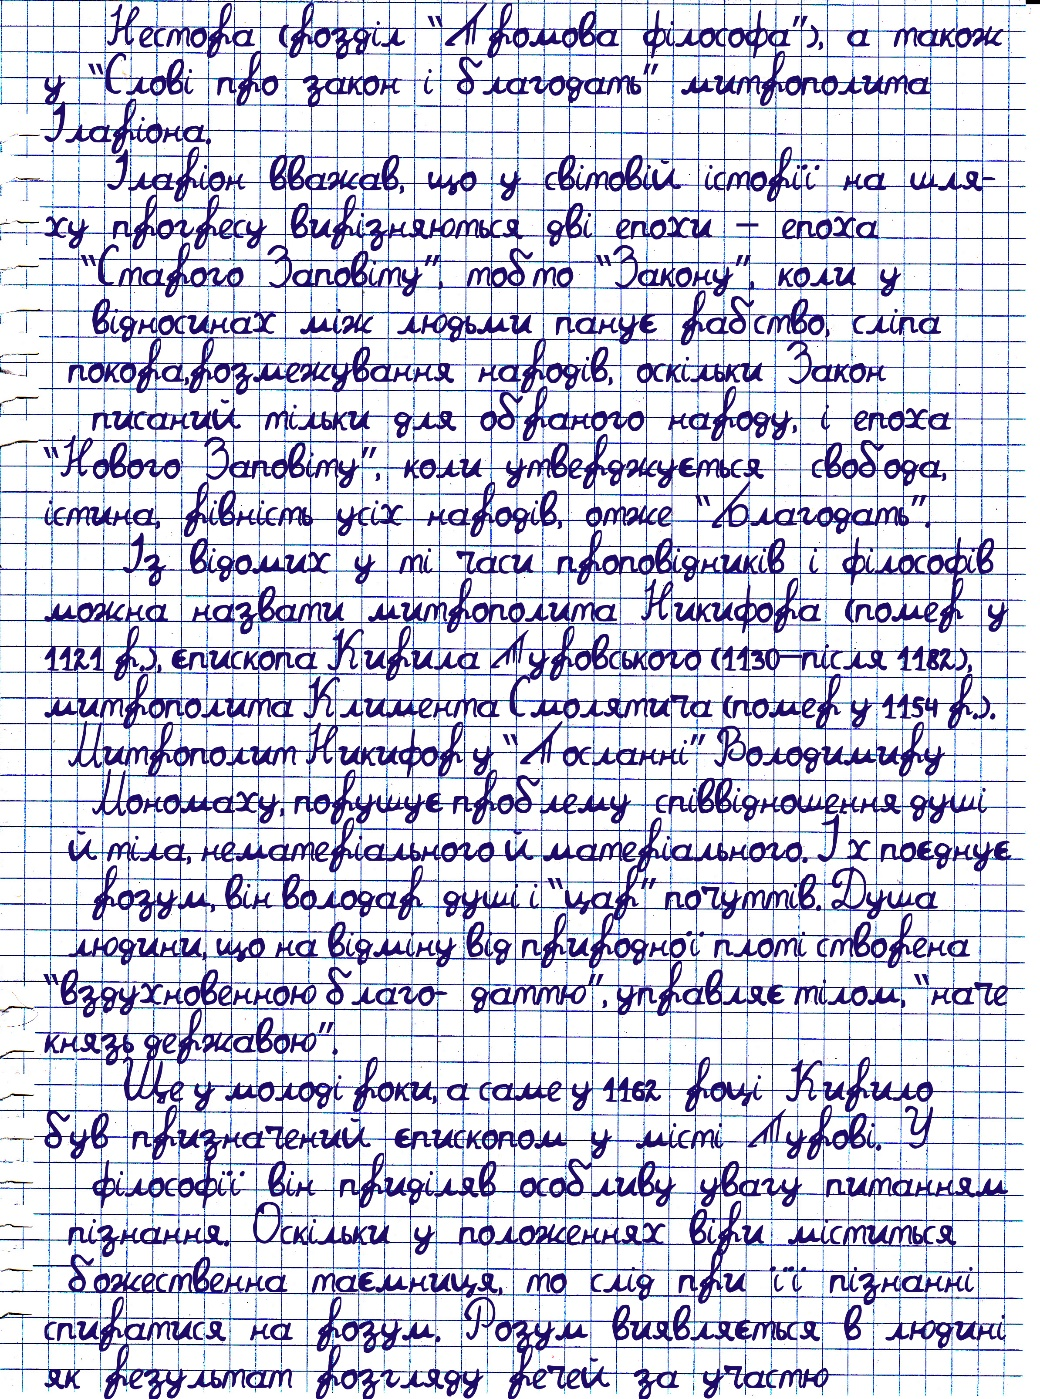 Нестора (розділ "Промова філософа"), а також
у "Слові про закон і благодать" митрополита
Іларіона.
Іларіон вважав, що у світовій історії на шля-
ху прогресу вирізняються дві епохи – епоха
"Старого Заповіту", тобто "Закону", коли у
відносинах між людьми панує рабство, сліпа
покора,розмежування народів, оскільки Закон
писаний тільки для обраного народу, і епоха
"Нового Заповіту", коли утверджується свобода,
істина, рівність усіх народів, отже "Благодать".
Із відомих у ті часи проповідників і філософів
можна назвати митрополита Никифора (помер у
1121 р.), єпископа Кирила Туровського (1130–після 1182),
митрополита Климента Смолятича (помер у 1154 р.).
Митрополит Никифор у "Посланні" Володимиру
Мономаху, порушує проблему співвідношення душі
й тіла, нематеріального й матеріального. Їх поєднує
розум, він володар душі і "цар" почуттів. Душа
людини, що на відміну від природної плоті створена
"вздухновенною благо- даттю", управляє тілом, "наче
князь державою".
Ще у молоді роки, а саме у 1162 році Кирило
був призначений єпископом у місті Турові. У
філософії він приділяв особливу увагу питанням
пізнання. Оскільки у положеннях віри міститься
божественна таємниця, то слід при її пізнанні
спиратися на розум. Розум виявляється в людині
як результат розгляду речей за участю